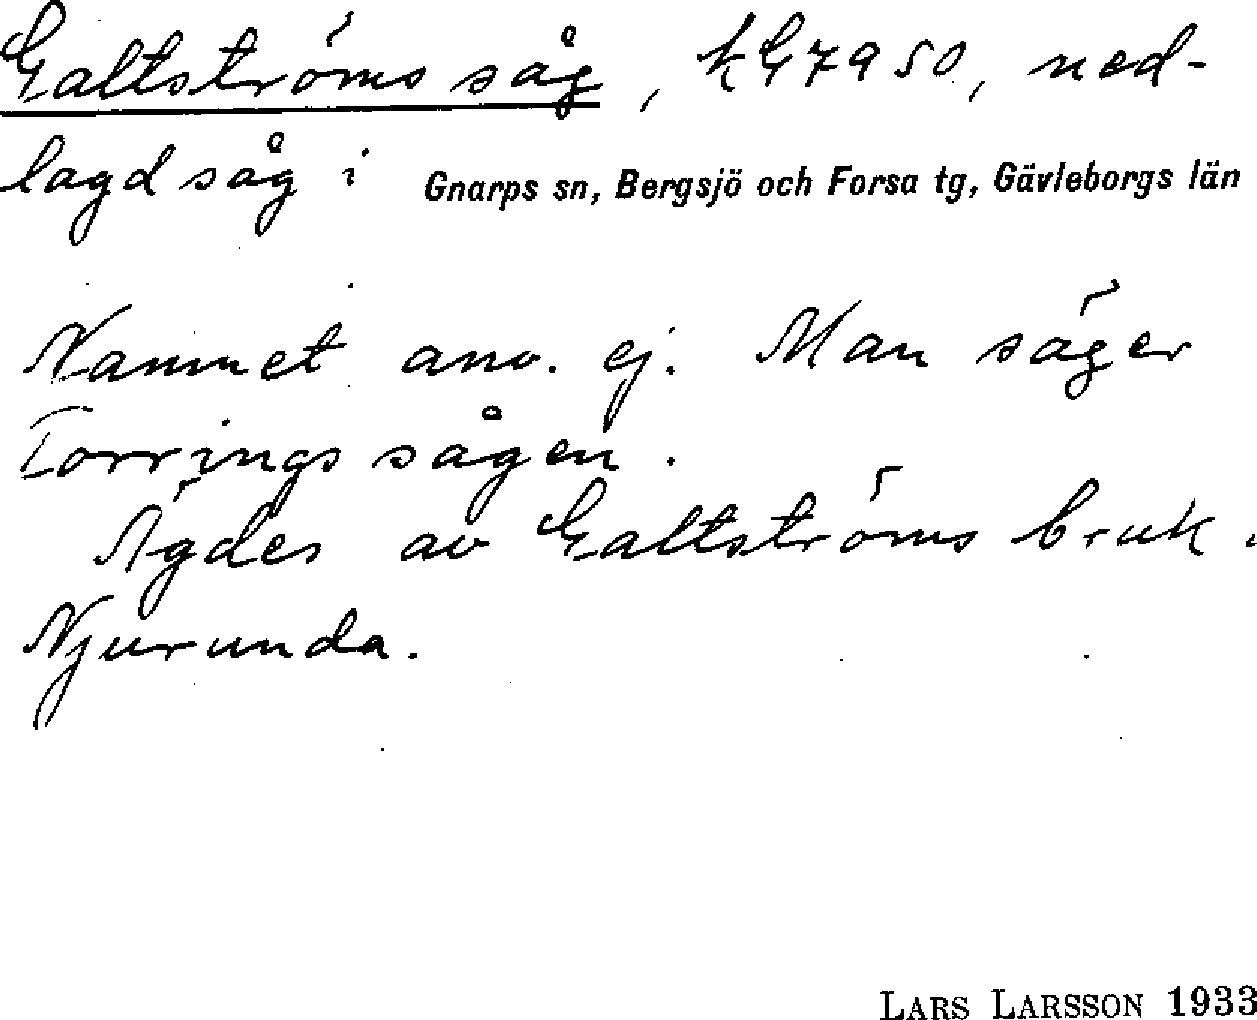 Galtströms såg, kG7950, ned-
lagd såg i Gnarps sn, Bergsjö och Forsa tg, Gävleborgs län
Namnet anv. ej. Man säger
Torringssågen.
Ägdes av Galtströms bruk.
Njurunda.
LARS LARSSON 1933